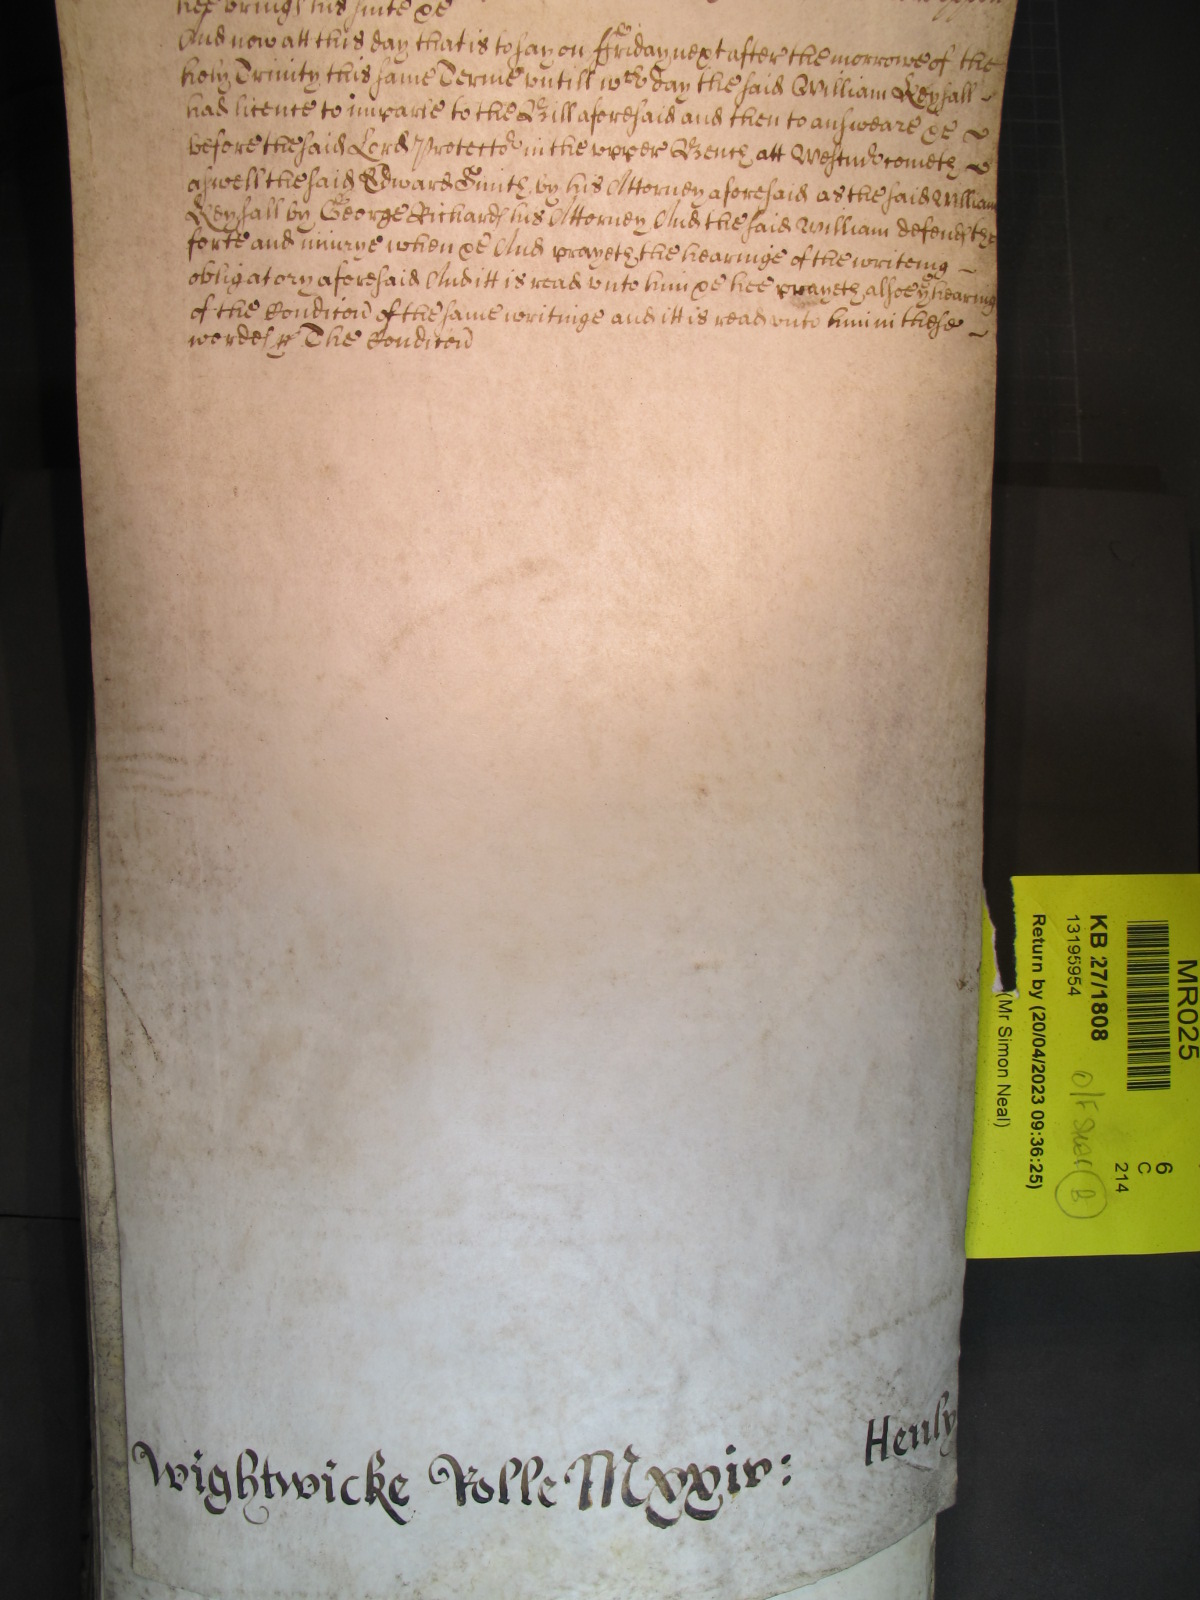 hee brings his suite &c
And now att this day that is to say on ffriday next after the morrowe of the
holy Trinity this same Terme untill wch day the said William Keysall
had licence to imparle to the Bill aforesaid and then to answeare &c
before the said Lord Protector in the upper Bench att Westmr cometh
aswell the said Edward Smith by his Attorney aforesaid as the said William
Keysall by George Richards his Attorney And the said William defends the
force and iniurye when &c And prayeth the hearinge of the writeing
obligatory aforesaid And itt is read unto him &c hee prayeth alsoe ye hearing
of the Condicon of the same writinge and itt is read unto him in these
wordes ss The Condicon
Wightwicke Rolle Mxxiv:
Henly
MR025
6
C
214
KB 27/1808
13195954
Return by (20/04/2023 09:36:25)
(Mr Simon Neal)